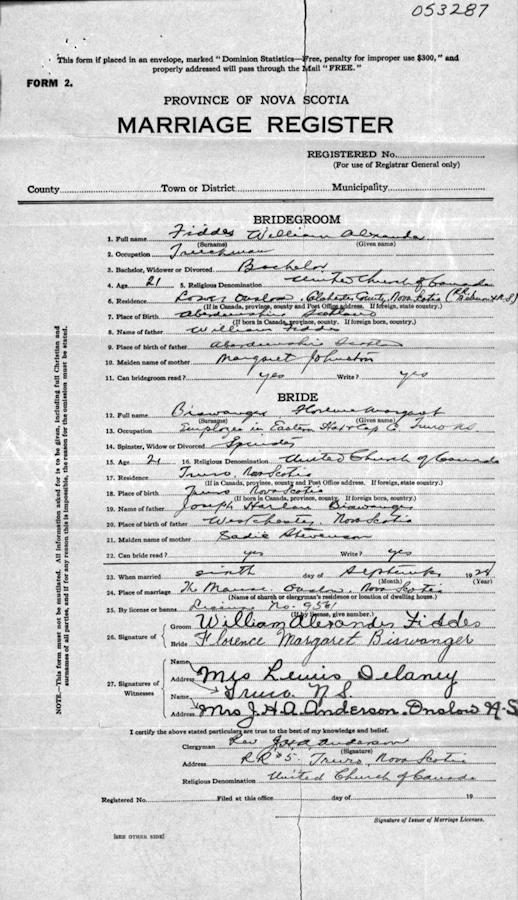 053287
This form if placed in an envelope, marked "Dominion Statistics—Free, penalty for improper use $300," and
properly addressed will pass through the Mail "FREE."
FORM 2.
PROVINCE OF NOVA SCOTIA
MARRIAGE REGISTER
REGISTERED No.
(For use of Registrar General only)
County Town or District Municipality
BRIDEGROOM
1. Full name Fiddes William Alexander
(Surname) (Given name)
2. Occupation
3. Bachelor, Widower or Divorced Bachelor
4. Age 21 5. Religious Denomination United Church of Canada
6. Residence Lower Onslow, Colchester County, Nova Scotia
(If in Canada, province, county and Post Office address. If foreign, state country)
7. Place of Birth Aberdeenshire Scotland
(If born in Canada, province, county. If foreign, country)
8. Name of father William Fiddes
9. Place of birth of father Aberdeenshire Scotland
10. Maiden name of mother Margaret Johnston
11. Can bridegroom read? yes Write? yes
BRIDE
12. Full name Biswanger Florence Margaret
(Surname) (Given name)
13. Occupation Employee in Eastern Hat & Cap Co Truro N.S.
14. Spinster, Widow or Divorced Spinster
15. Age 21 16. Religious Denomination United Church of Canada
17. Residence Truro, Nova Scotia
(If in Canada, province, county and Post Office address. If foreign, state country)
18. Place of birth Truro Nova Scotia
(If born in Canada, province, county. If foreign country)
19. Name of father Joseph Harlan Biswanger
20. Place of birth of father Westchester, Nova Scotia
21. Maiden name of mother Sadie Stevenson
22. Can bride read? yes Write? yes
23. When married ninth day of September 1928
(Month) (Year)
24. Place of marriage The Manse, Onslow, Nova Scotia
(Name of church or clergyman's residence or location of dwelling house.)
25. By license or banns License No. 9561
(If by license, give number.)
26. Signature of
Groom William Alexander Fiddes
Bride Florence Margaret Biswanger
27. Signatures of Witnesses
Name
Address Mrs Lewis Delaney
Name Truro N.S.
Address Mrs J.H.A. Anderson. Onslow N.S
I certify the above stated particulars are true to the best of my knowledge and belief.
Clergyman Rev J.H.A. Anderson
(Signature)
Address R R #5. Truro, Nova Scotia
Religious Denomination United Church of Canada
Registered No. Filed at this office day of 19
Signature of Issuer of Marriage Licenses.
[SEE OTHER SIDE]
NOTE.—This form must not be mutilated. All information asked for is to be given, including full Christian and
surnames of all parties, and if for any reason this is impossible, the reason for the omission must be stated.